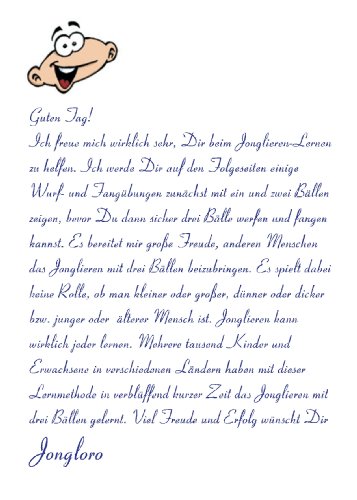 Guten Tag!
Ich freue mich wirklich sehr, Dir beim Jonglieren-Lernen
zu helfen. Ich werde Dir auf den Folgeseiten einige
Wurf- und Fangübungen zunächst mit ein und zwei Bällen
zeigen, bevor Du dann sicher drei Bälle werfen und fangen
kannst. Es bereitet mir große Freude, anderen Menschen
das Jonglieren mit drei Bällen beizubringen. Es spielt dabei
keine Rolle, ob man kleiner oder großer, dünner oder dicker
bzw. junger oder älterer Mensch ist. Jonglieren kann
wirklich jeder lernen. Mehrere tausend Kinder und
Erwachsene in verschiedenen Ländern haben mit dieser
Lernmethode in verblüffend kurzer Zeit das Jonglieren mit
drei Bällen gelernt. Viel Freude und Erfolg wünscht Dir
Jongloro